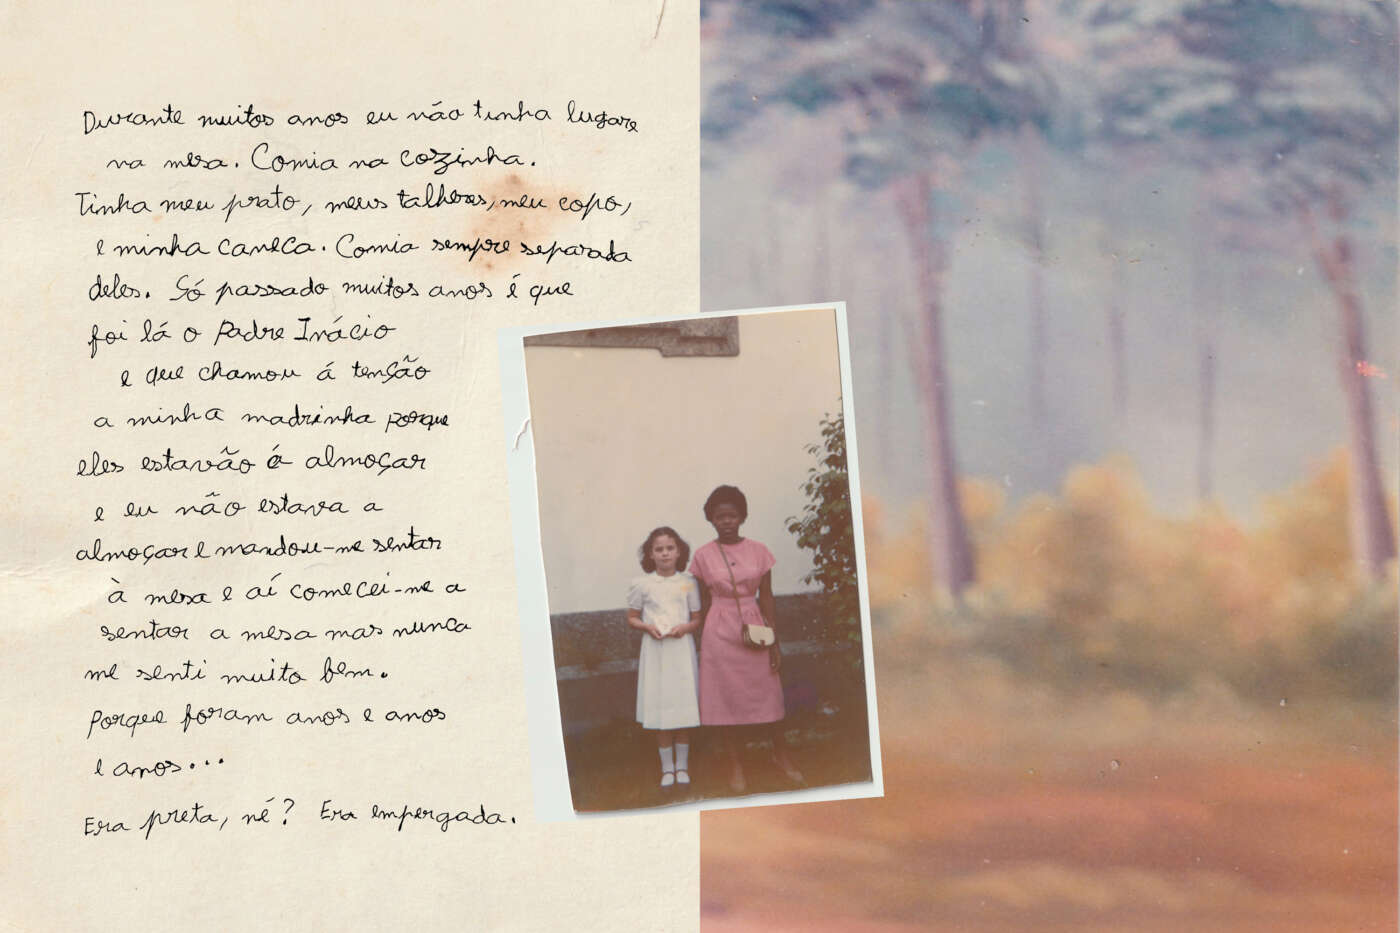 Durante muitos anos eu não tinha lugare
na mesa. Comia na cozinha.
Tinha meu prato, meus talheres, meu copo,
e minha caneca. Comia sempre separada
deles. Só passado muitos anos é que
foi lá o Padre Inácio
e que chamou á tenção
a minha madrinha porque
eles estavão a almoçar
e eu não estava a
almoçar e mandou-me sentar
à mesa e aí comecei-me a
sentar a mesa mas nunca
me senti muito bem.
Porque foram anos e anos
e anos...
Era preta, né? Era empergada.